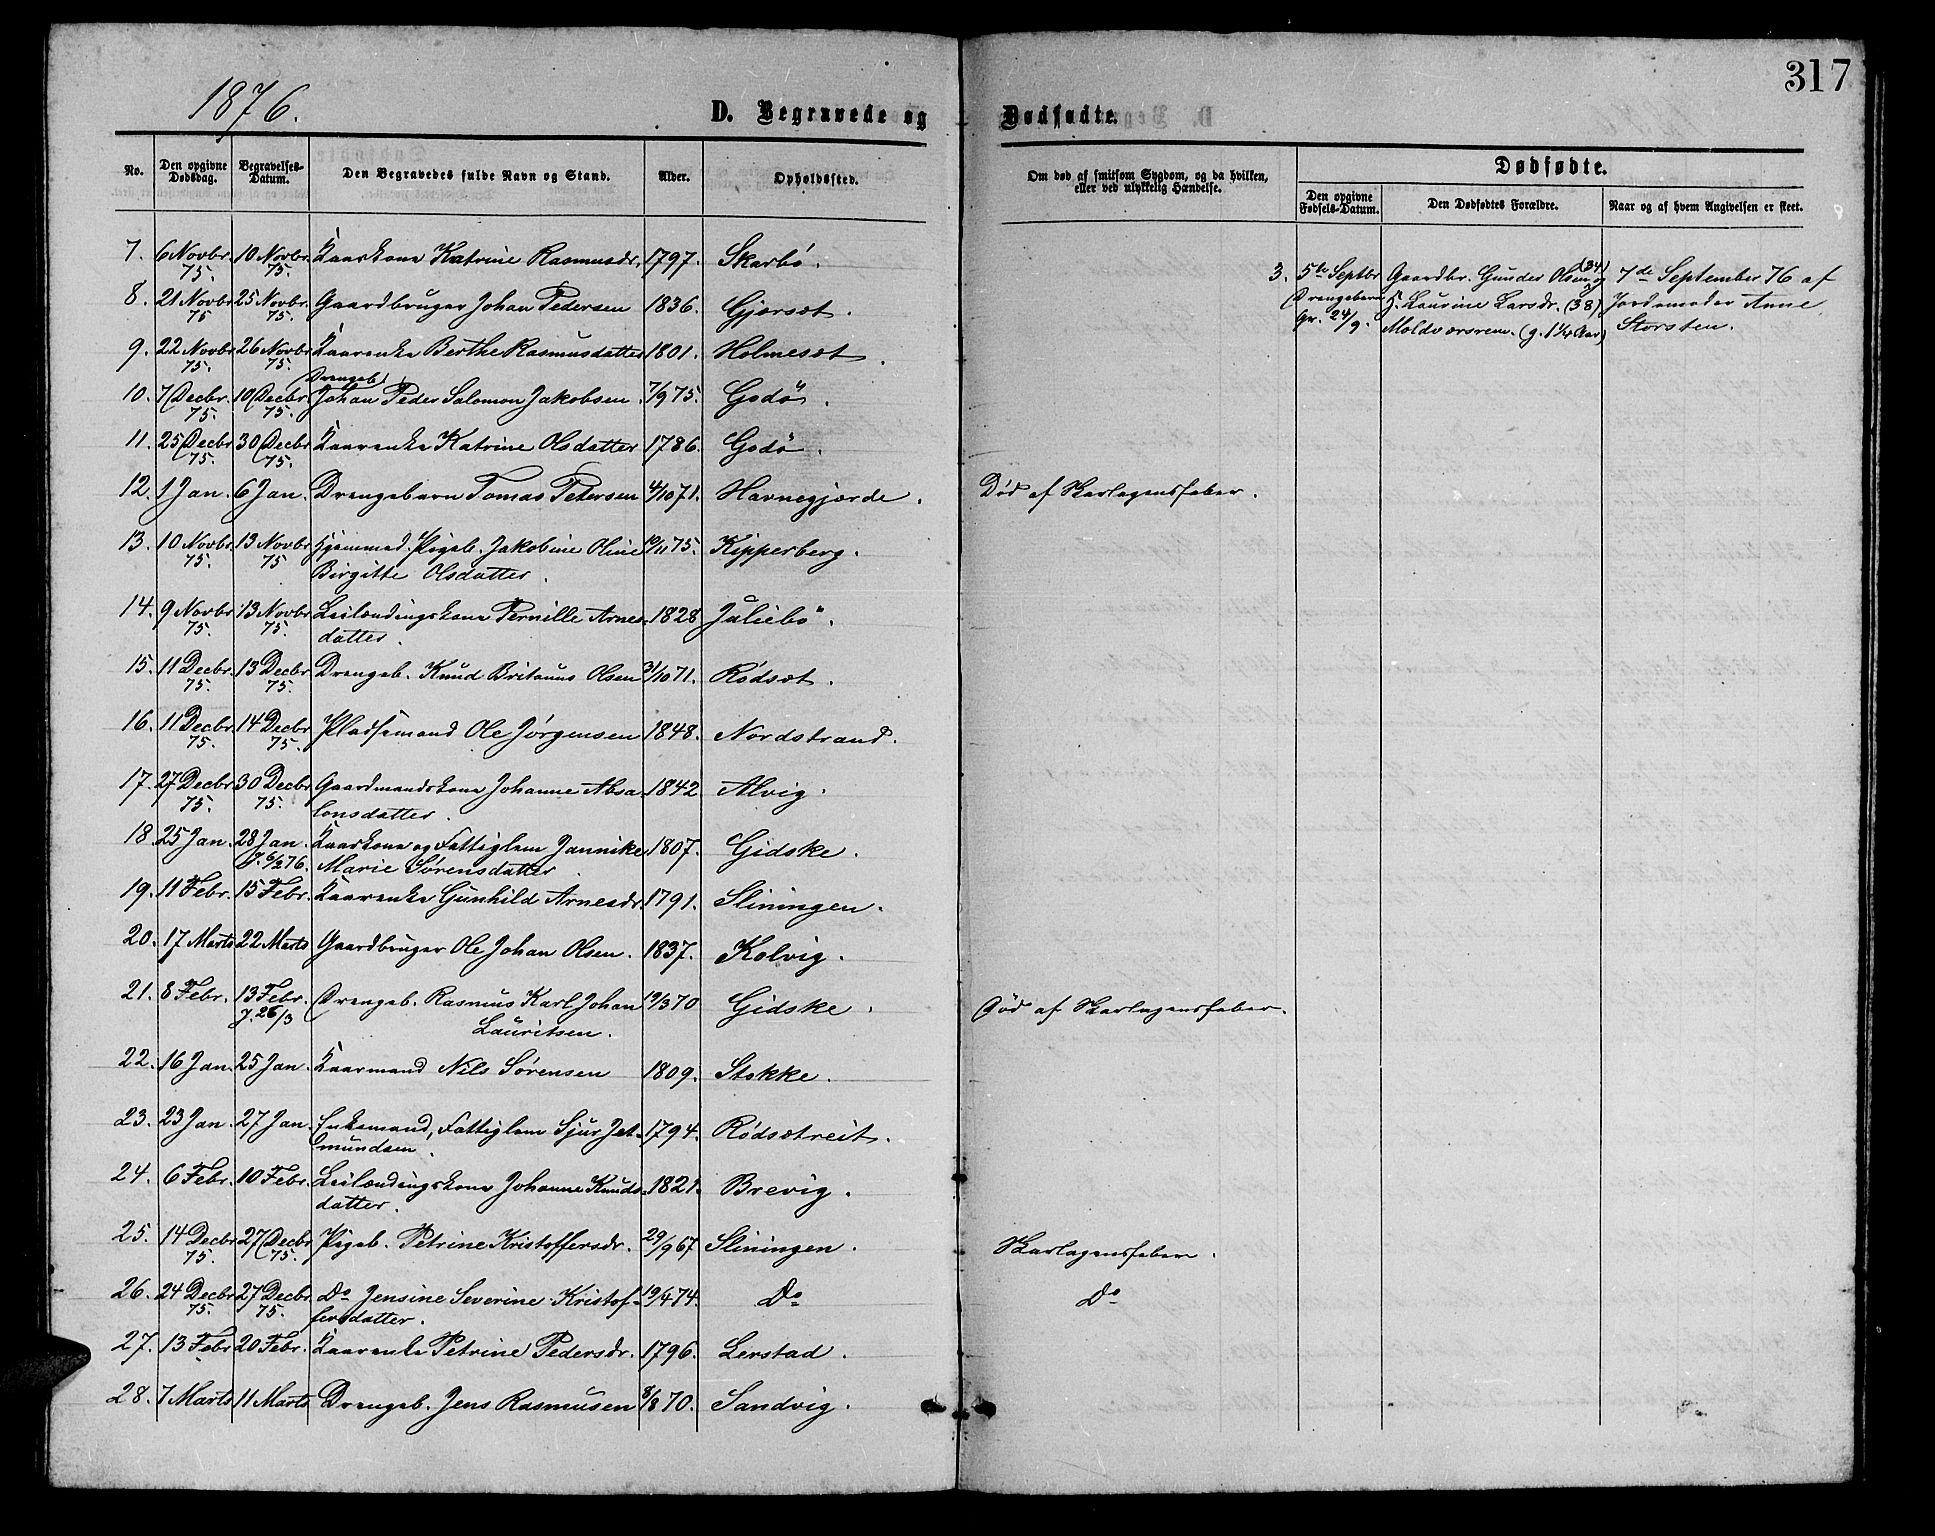 317
1876.
D. Begravede og Dødfødte.
No.
Den opgivne Dødsdag.
Begravelses-Datum.
Den Begravedes fulde Navn og Stand.
Alder.
Opholdssted.
Om død af smitsom Sygdom, og da hvilken, eller ved ulykkelig Hændelse.
Dødfødte.
Den opgivne Fødsels-Datum.
Den Dødfødtes Forældre.
Naar og af hvem Angivelsen er skeet.
7. 6 Novbr. 75. 10 Novbr. 75. Kaarkone Katrine Rasmusdr. 1797. Skarbö.
3. 5te Septbr Gaardbr. Gunder Olsen (34) og 7de September 76 af
Drengebarn H. Laurine Larsdr. (38) Jordemoder Anne
Gr. 24/9. Moldværsrem. (g. 1 1/4 Aar) Storsten.
8. 21 Novbr 75 25 Novbr. 75. Gaardbruger Johan Pedersen 1836. Gjørsæt.
9. 22 Novbr 75. 26 Novbr 75. Kaarenke Berthe Rasmusdatter 1801. Holmesæt.
10. 7 Decbr. 75. 10 Decbr. 75. Drengeb. Johan Peder Salomon Jakobsen. 7/9 75. Godö.
11. 25 Decbr 75. 30 Decbr 75. Kaarenke Katrine Olsdatter 1786. Godö.
12. 1 Jan. 6 Jan. Drengebarn Tomas Petersen 4/10 71. Havnegjærde. Död af Skarlagensfeber.
13. 10 Novbr 75. 13 Novbr 75 Hjemmed. Pigeb. Jakobine Oline 10/11 75. Kipperberg.
Birgitte Olsdatter.
14. 9 Novbr. 75. 13 Novbr 75. Leilændingskone Pernille Arnes- 1828 Juliebö.
datter.
15. 11 Decbr. 75. 13 Decbr 75. Drengeb. Knud Britanus Olsen 31/10 71. Rödsæt.
16. 11 Decbr. 75. 14 Decbr 75. Pladsemand Ole Jørgensen 1848. Nordstrand.
17. 27 Decbr 75. 30 Decbr 75. Gaardmandskone Johanne Absa- 1842 Alvig.
lonsdatter.
18. 25 Jan. 28 Jan. Kaarkone og Fattiglem Jannike 1807. Gidske.
J. 6/2 76. Marie Sørensdatter.
19. 11 Febr. 15 Febr. Kaarenke Gunhild Arnesdr. 1791. Sliningen.
20. 17 Marts 22 Marts Gaardbruger Ole Johan Olsen. 1837. Kolvig.
21. 8 Febr. 13 Febr. Drengeb. Rasmus Karl Johan 19/3 70 Gidske. Död af Skarlagensfeber.
J. 26/3 Lauritsen.
22. 16 Jan. 25 Jan. Kaarmand Nils Sørensen 1809. Stokke.
23. 23 Jan. 27 Jan. Enkemand, Fattiglem Sjur Jet- 1794. Rödsætreit.
mundsen.
24. 6 Febr. 10 Febr. Leilændingskone Johanne Knuds- 1821. Brevig.
datter.
25. 14 Decbr 75. 27 Decbr 75. Pigeb. Petrine Kristoffersdr. 29/9 67 Sliningen. Skarlagensfeber.
26. 24 Decbr 75. 27 Decbr. 75. Do Jensine Severine Kristof- 19/4 74. Do Do
fersdatter.
27. 13 Febr 20 Febr. Kaarenke Petrine Pedersdr. 1796. Lerstad.
28. 7 Marts 11 Marts Drengeb. Jens Rasmusen 8/8 70. Sandvig.